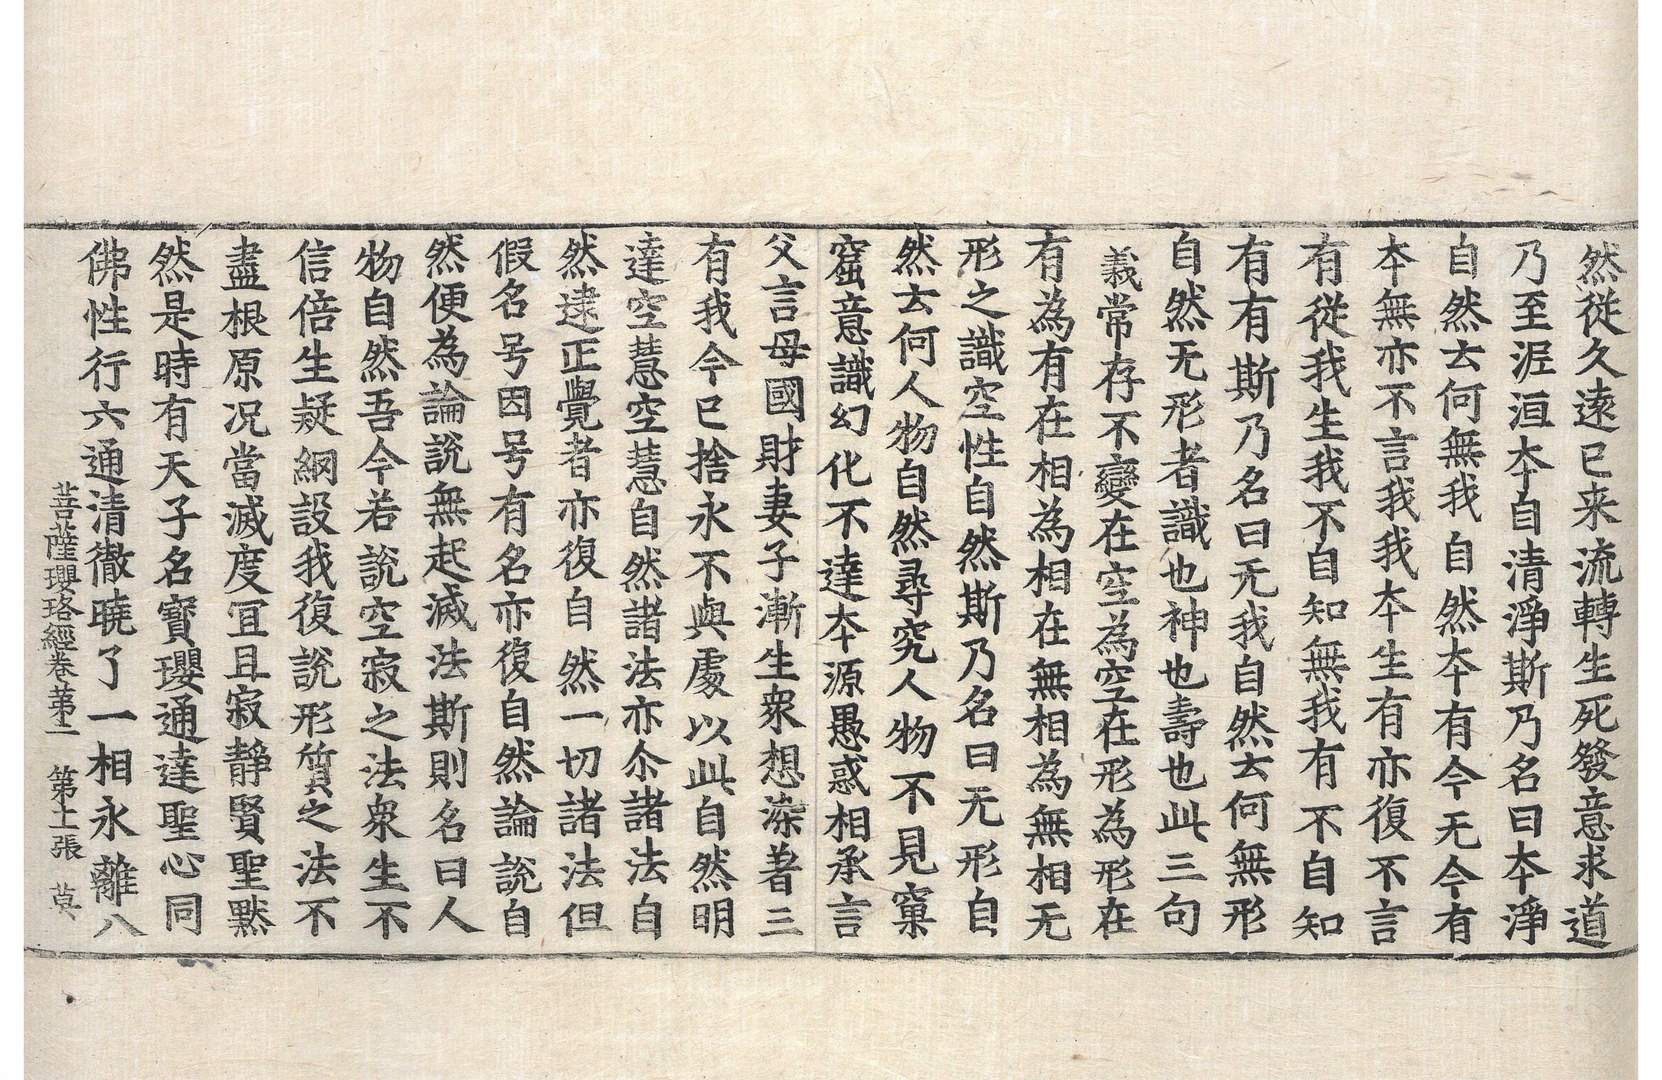 然從久遠已来流轉生死發意求道
乃至泥洹夲自清淨斯乃名曰夲淨
自然云何無我自然夲有今无今有
夲無亦不言我我夲生有亦復不言
有從我生我不自知無我有不自知
有有斯乃名曰无我自然云何無形
自然无形者識也神也壽也此三句
義常存不變在空為空在形為形在
有為有在相為相在無相為無相无
形之識空性自然斯乃名曰无形自
然云何人物自然尋究人物不見窠
窟意識幻化不達夲源愚惑相承言
父言母國財妻子漸生衆想染著三
有我今已捨永不與處以此自然明
達空慧空慧自然諸法亦尒諸法自
然逮正覺者亦復自然一切諸法但
假名号因号有名亦復自然論說自
然便為論說無起滅法斯則名曰人
物自然吾今若說空寂之法衆生不
信倍生疑網設我復說形質之法不
盡根原况當滅度宜且寂靜賢聖默
然是時有天子名寶瓔通達聖心同
佛性行六通清徹曉了一相永離八
菩薩瓔珞經卷苐二 第十一張 莫